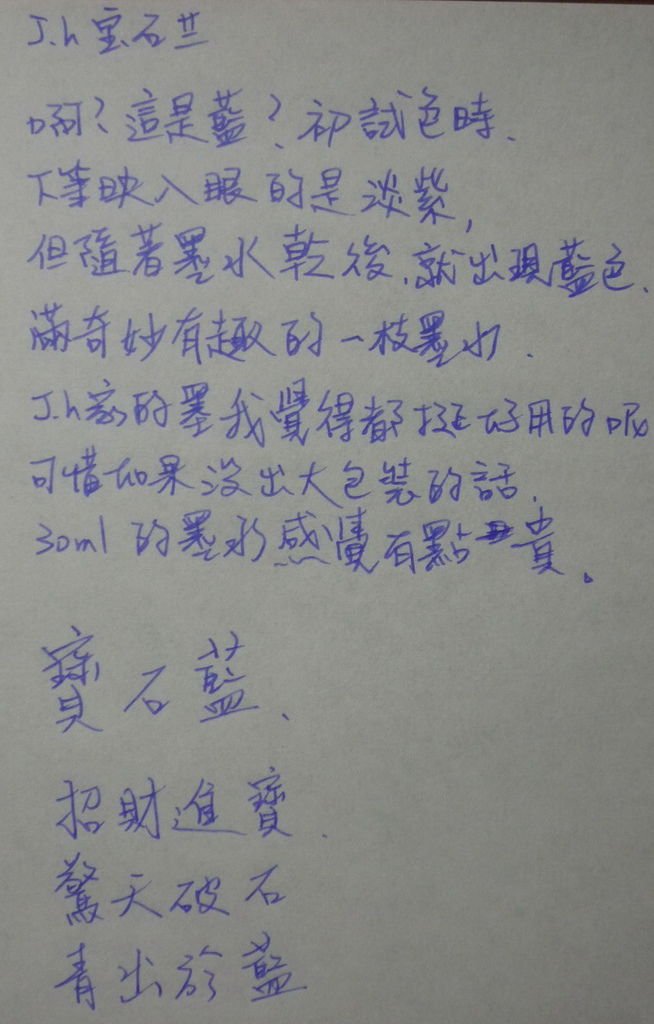 J.h 宝石兰
啊?這是藍?初試色時、
下筆映入眼的是淡紫,
但隨著墨水乾後、就出現藍色、
滿奇妙有趣的一枝墨水、
J.h家的墨我覺得都挺好用的呢
可惜如果沒出大包裝的話、
30ml 的墨水感覺有點貴。
寶石藍、
招財進寶、
驚天破石
青出於藍